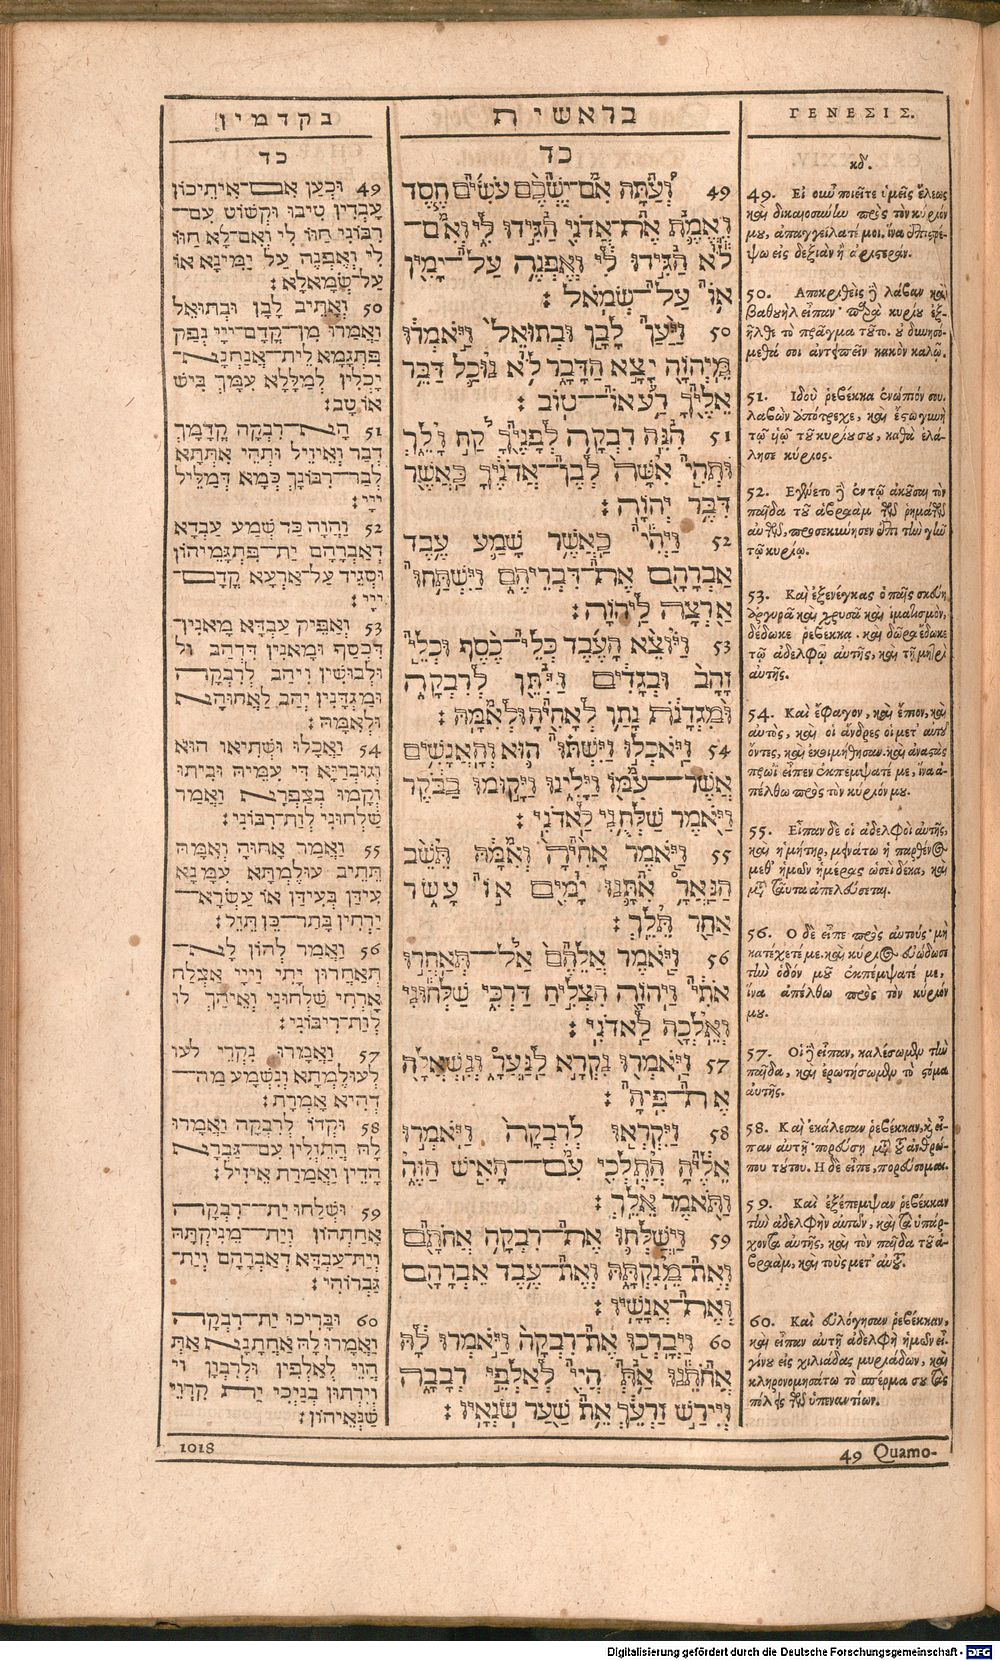 בקדמין
כד
49 וּכְעַן אִם־אִיתֵיכוֹן
עָבְדִין טִיבוּ וּקְשׁוֹט עִם־
רִבּוֹנִי חַוּוֹ לִי וְאִם־לָא חַוּוֹ
לִי וְאֶפְנֶה עַל יַמִּינָא אוֹ
עַל־שְׂמָאלָא׃
50 וַאֲתֵיב לָבָן וּבְתוּאֵל
וַאֲמָרוּ מִן־קֳדָם־יְיָי נְפַק
פִּתְגָמָא לֵית־אֲנַחְנָא־
יָכְלִין לְמַלָּלָא עִמָּךְ בִּישׁ
אוֹ טָב׃
51 הָא־רִבְקָה קֳדָמָךְ
דְּבַר וְאֵיזֵיל וּתְהֵי אִתְּתָא
לְבַר־רִבּוֹנָךְ כְּמָא דְּמַלֵּיל
יְיָי׃
52 וַהֲוָה כַּד שְׁמַע עַבְדָּא
דְאַבְרָהָם יַת־פִּתְגָמֵיהוֹן
וּסְגֵיד עַל־אַרְעָא קֳדָם־
יְיָי׃
53 וְאַפֵּיק עַבְדָּא מָאנִין־
דִּכְסַף וּמָאנִין דִּדְהַב
וּלְבוּשִׁין וִיהַב לְרִבְקָה
וּמִגְדָּנִין יְהַב לַאֲחוּהָא
וּלְאִמַּהּ׃
54 וַאֲכָלוּ וּשְׁתִיאוּ הוּא
וְגוּבְרַיָּא דִּי עִמֵּיהּ וּבִיתוּ
וְקָמוּ בְצַפְרָא וַאֲמַר
שַׁלְּחוּנִי לְוַת־רִבּוֹנִי׃
55 וַאֲמַר אֲחוּהָ וְאִמַּהּ
תֵּתֵיב עוּלֶמְתָּא עִמָּנָא
עִידָּן בְּעִידָּן אוֹ עַשְׂרָא־
יַרְחִין בָּתַר־כֵּן תֵּזֵל׃
56 וַאֲמַר לְהוֹן לָא־
תְּאַחֲרוּן יָתִי וַיְיָי אַצְלַח
אָרְחִי שַׁלְּחוּנִי וְאֵיהַךְ לְוַ
לְוַת־רִיבּוֹנִי׃
57 וַאֲמָרוּ נִקְרֵי לְעוּ
לְעוּלֶמְתָּא וְנִשְׁמַע מַה־
דְּהִיא אָמְרָת׃
58 וּקְרוֹ לְרִבְקָה וַאֲמָרוּ
לַהּ הֲתֵזְלִין עִם־גַּבְרָא
הָדֵין וַאֲמָרַת אֵיזִיל׃
59 וְשַׁלַּחוּ יַת־רִבְקָה
אֲחָתְהוֹן וְיַת־מֵנִיקְתַּהּ
וְיַת־עַבְדָּא דְאַבְרָהָם וְיַת־
גַּבְרוֹהִי׃
60 וּבָרִיכוּ יַת־רִבְקָה
וַאֲמָרוּ לַהּ אֲחָתָנָא אַתְּ
הֲוַי לְאַלְפִין וּלְרִבְוָן וְיִ
וְיִרְתוּן בְּנַיְכִי יַת קִרְוֵי
שַׂנְאֵיהוֹן׃
בראשית
כד
49 וְעַתָּה אִם־יֶשְׁכֶם עֹשִׂים חֶסֶד
וֶאֱמֶת אֶת־אֲדֹנִי הַגִּידוּ לִי וְאִם־
לֹא הַגִּידוּ לִי וְאֶפְנֶה עַל־יָמִין
אוֹ עַל־שְׂמֹאל׃
50 וַיַּעַן לָבָן וּבְתוּאֵל וַיֹּאמְרוּ
מֵיְהוָֹה יָצָא הַדָּבָר לֹא נוּכַל דַּבֵּר
אֵלֶיךָ רַע אוֹ־טוֹב׃
51 הִנֵּה רִבְקָה לְפָנֶיךָ קַח וָלֵךְ
וּתְהִי אִשָּׁה לְבֶן־אֲדֹנֶיךָ כַּאֲשֶׁר
דִּבֶּר יְהוָֹה׃
52 וַיְהִי כַּאֲשֶׁר שָׁמַע עֶבֶד
אַבְרָהָם אֶת־דִּבְרֵיהֶם וַיִּשְׁתַּחוּ
אַרְצָה לַיהוָֹה׃
53 וַיּוֹצֵא הָעֶבֶד כְּלֵי־כֶסֶף וּכְלֵי
זָהָב וּבְגָדִים וַיִּתֵּן לְרִבְקָה
וּמִגְדָּנֹת נָתַן לְאָחִיהָ וּלְאִמָּהּ׃
54 וַיֹּאכְלוּ וַיִּשְׁתּוּ הוּא וְהָאֲנָשִׁים
אֲשֶׁר־עִמּוֹ וַיָּלִינוּ וַיָּקוּמוּ בַבֹּקֶר
וַיֹּאמֶר שַׁלְּחֻנִי לַאדֹנִי׃
55 וַיֹּאמֶר אָחִיהָ וְאִמָּהּ תֵּשֵׁב
הַנַּעֲרָ אִתָּנוּ יָמִים אוֹ עָשׂוֹר
אַחַר תֵּלֵךְ׃
56 וַיֹּאמֶר אֲלֵהֶם אַל־תְּאַחֲרוּ
אֹתִי וַיהוָֹה הִצְלִיחַ דַּרְכִּי שַׁלְּחוּנִי
וְאֵלְכָה לַאדֹנִי׃
57 וַיֹּאמְרוּ נִקְרָא לַנַּעֲרָ וְנִשְׁאֲלָה
אֶת־פִּיהָ׃
58 וַיִּקְרְאוּ לְרִבְקָה וַיֹּאמְרוּ
אֵלֶיהָ הֲתֵלְכִי עִם־הָאִישׁ הַזֶּה
וַתֹּאמֶר אֵלֵךְ׃
59 וַיְשַׁלְּחוּ אֶת־רִבְקָה אֲחֹתָם
וְאֶת־מֵנִקְתָּהּ וְאֶת־עֶבֶד אַבְרָהָם
וְאֶת־אֲנָשָׁיו׃
60 וַיְבָרֲכוּ אֶת־רִבְקָה וַיֹּאמְרוּ לָהּ
אֲחֹתֵנוּ אַתְּ הֲיִי לְאַלְפֵי רְבָבָה
וְיִירַשׁ זַרְעֵךְ אֵת שַׁעַר שֹׂנְאָיו׃
ΓΕΝΕΣΙΣ.
κδ.
49. Εἰ οὖν ποιεῖτε ὑμεῖς ἔλεως
καὶ δικαιοσύνην πρὸς τὸν κύριόν
μου, ἀπαγγείλατέ μοι. ἵνα ἐπιστρέ-
ψω εἰς δεξιὰν ἢ ἀριστεράν.
50. Αποκριθεὶς δὲ λάβαν καὶ
βαθουὴλ εἶπαν· παρὰ κυρίου ἐξ-
ῆλθε τὸ πρᾶγμα τοῦτο. οὐ δυνησό-
μεθά σοι ἀντειπεῖν κακὸν καλῷ.
51. Ιδοὺ ῥεβέκκα ἐνώπιόν σου.
λαβὼν ἀπότρεχε, καὶ ἔσῳ γυνὴ
τῷ υἱῷ τοῦ κυρίου σου, καθὰ ἐλά-
λησε κύριος.
52. Εγένετο δὲ ἐν τῷ ἀκοῦσαι τὸν
παῖδα τοῦ ἀβραὰμ τῶν ῥημάτων
αὐτῶν, προσεκύνησεν ἐπὶ τὴν γῆν
τῷ κυρίῳ.
53. Καὶ ἐξενέγκας ὁ παῖς σκεύη
ἀργυρᾶ καὶ χρυσᾶ καὶ ἱματισμὸν,
δέδωκε ῥεβέκκα. καὶ δῶρα ἔδωκε
τῷ ἀδελφῷ αὐτῆς, καὶ τῇ μητρὶ
αὐτῆς.
54. Καὶ ἔφαγον, καὶ ἔπιον, καὶ
αὐτὸς, καὶ οἱ ἄνδρες οἱ μετ' αὐτοῦ
ὄντες, καὶ ἐκοιμήθησαν. καὶ ἀναστὰς
πρωῒ εἶπεν ἐκπέμψατέ με, ἵνα ἀ-
πέλθω πρὸς τὸν κύριόν μου.
55. Εἶπαν δὲ οἱ ἀδελφοὶ αὐτῆς,
καὶ ἡ μήτηρ, μεινάτω ἡ παρθένος
μεθ' ἡμῶν ἡμέρας ὡσεὶ δέκα, καὶ
μετὰ ταῦτα ἀπελεύσεται.
56. Ο δὲ εἶπε πρὸς αὐτούς· μὴ
κατέχετέ με. καὶ κύριος εὐώδωσε
τὴν ὁδόν μου ἐκπέμψατέ με,
ἵνα ἀπέλθω πρὸς τὸν κύριόν
μου.
57. Οἱ δὲ εἶπαν, καλέσωμεν τὴν
παῖδα, καὶ ἐρωτήσωμεν τὸ στόμα
αὐτῆς.
58. Καὶ ἐκάλεσαν ῥεβέκκαν, καὶ εἶ-
παν αὐτῇ πορεύσῃ μετὰ τοῦ ἀνθρώ-
που τούτου. Η δὲ εἶπε, πορεύσομαι.
59. Καὶ ἐξέπεμψαν ῥεβέκκαν
τὴν ἀδελφὴν αὐτῶν, καὶ τὰ ὑπάρ-
χοντα αὐτῆς, καὶ τὸν παῖδα τοῦ ἀ-
βραὰμ, καὶ τοὺς μετ' αὐτοῦ.
60. Καὶ εὐλόγησαν ῥεβέκκαν,
καὶ εἶπαν αὐτῇ ἀδελφὴ ἡμῶν εἶ
γίνου εἰς χιλιάδας μυριάδων, καὶ
κληρονομησάτω τὸ σπέρμα σου τὰς
πόλεις τῶν ὑπεναντίων.
1018
49 Quamo-
Digitalisierung gefördert durch die Deutsche Forschungsgemeinschaft - DFG